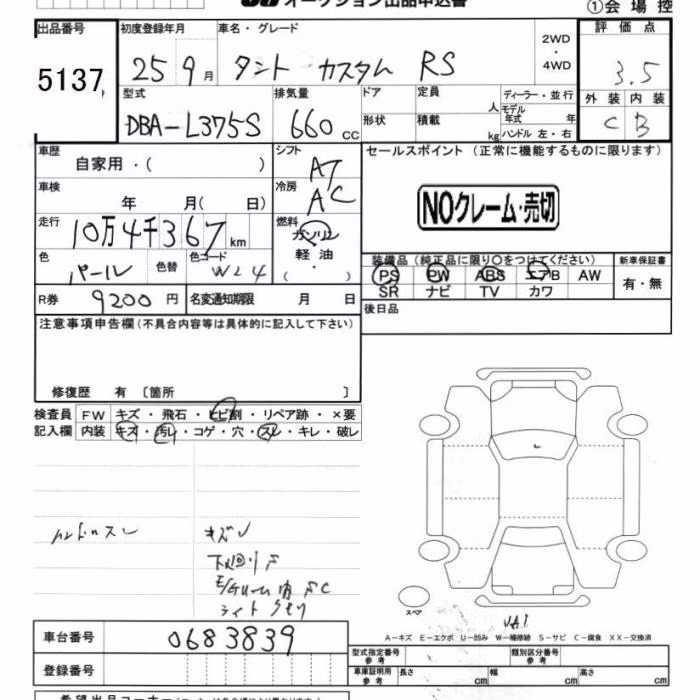 オークション出品申込書 ①会場控
出品番号 初度登録年月 車名・グレード 2WD・4WD 評価点
5137 25 9月 タント カスタム RS 3.5
型式 排気量 ドア 定員 人 ディーラー・並行 外装 内装
DBA-L375S 660cc 形状 積載 kg モデル年式 年 C B
ハンドル 左・右
車歴 自家用・( ) シフト AT セールスポイント (正常に機能するものに限ります)
車検 年 月( 日) 冷房 AC NOクレーム・売切
走行 10万4千367km 燃料 ガソリン
色 パール 色替 色コード W24 軽油・( )
装備品(純正品に限り○をつけてください) 新車保証書
PS PW ABS エアB AW 有・無
SR ナビ TV カワ
R券 9200円 名変通知期限 月 日 後日品
注意事項申告欄(不具合内容等は具体的に記入して下さい)
修復歴 有 〔箇所 〕
検査員 FW キズ・飛石・ヒビ割・リペア跡・×要
記入欄 内装 キズ・汚れ・コゲ・穴・スレ・キレ・破レ
ハンドルスレ キズU
下廻りF
ライトクモリ
スペア
A-キズ E-エクボ U-凹み W-補修跡 S-サビ C-腐食 XX-交換済
車台番号 0683839 型式指定番号 参考 類別区分番号 参考
登録番号 車庫証明用 参考 長さ cm 幅 cm 高さ cm